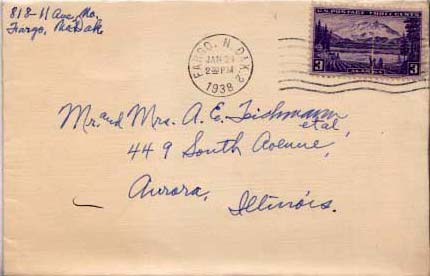 818-11 Ave. No.
Fargo, No.Dak
FARGO, N. DAK. 2
JAN 24
2 30 PM
1938
U.S. POSTAGE THREE CENTS
3
3
Mr. and Mrs. A. E. Teichmann
et al,
449 South Avenue,
Aurora,
Illinois.